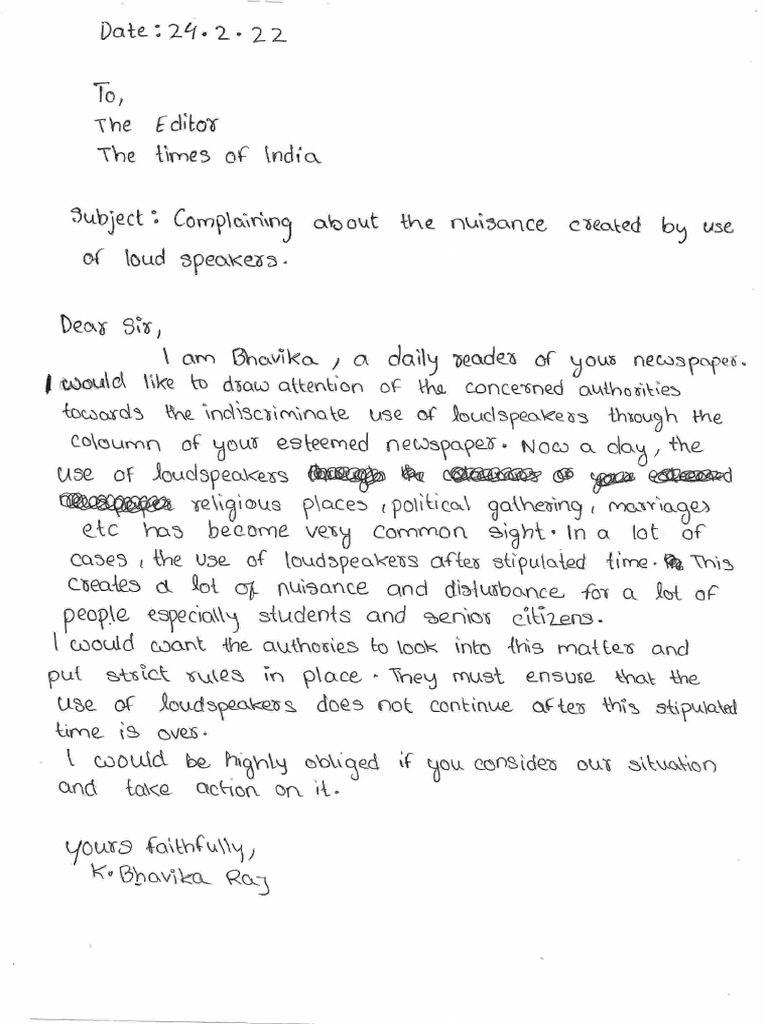 Date: 24.2.22
To,
The Editor
The times of India
Subject: Complaining about the nuisance created by use
of loud speakers.
Dear Sir,
I am Bhavika, a daily reader of your newspaper.
I would like to draw attention of the concerned authorities
towards the indiscriminate use of loudspeakers through the
coloumn of your esteemed newspaper. Now a day, the
use of loudspeakers
religious places, political gathering, marriages
etc has become very common sight. In a lot of
cases, the use of loudspeakers after stipulated time. This
creates a lot of nuisance and disturbance for a lot of
people especially students and senior citizens.
I would want the authories to look into this matter and
put strict rules in place. They must ensure that the
use of loudspeakers does not continue after this stipulated
time is over.
I would be highly obliged if you consider our situation
and take action on it.
yours faithfully,
K. Bhavika Raj